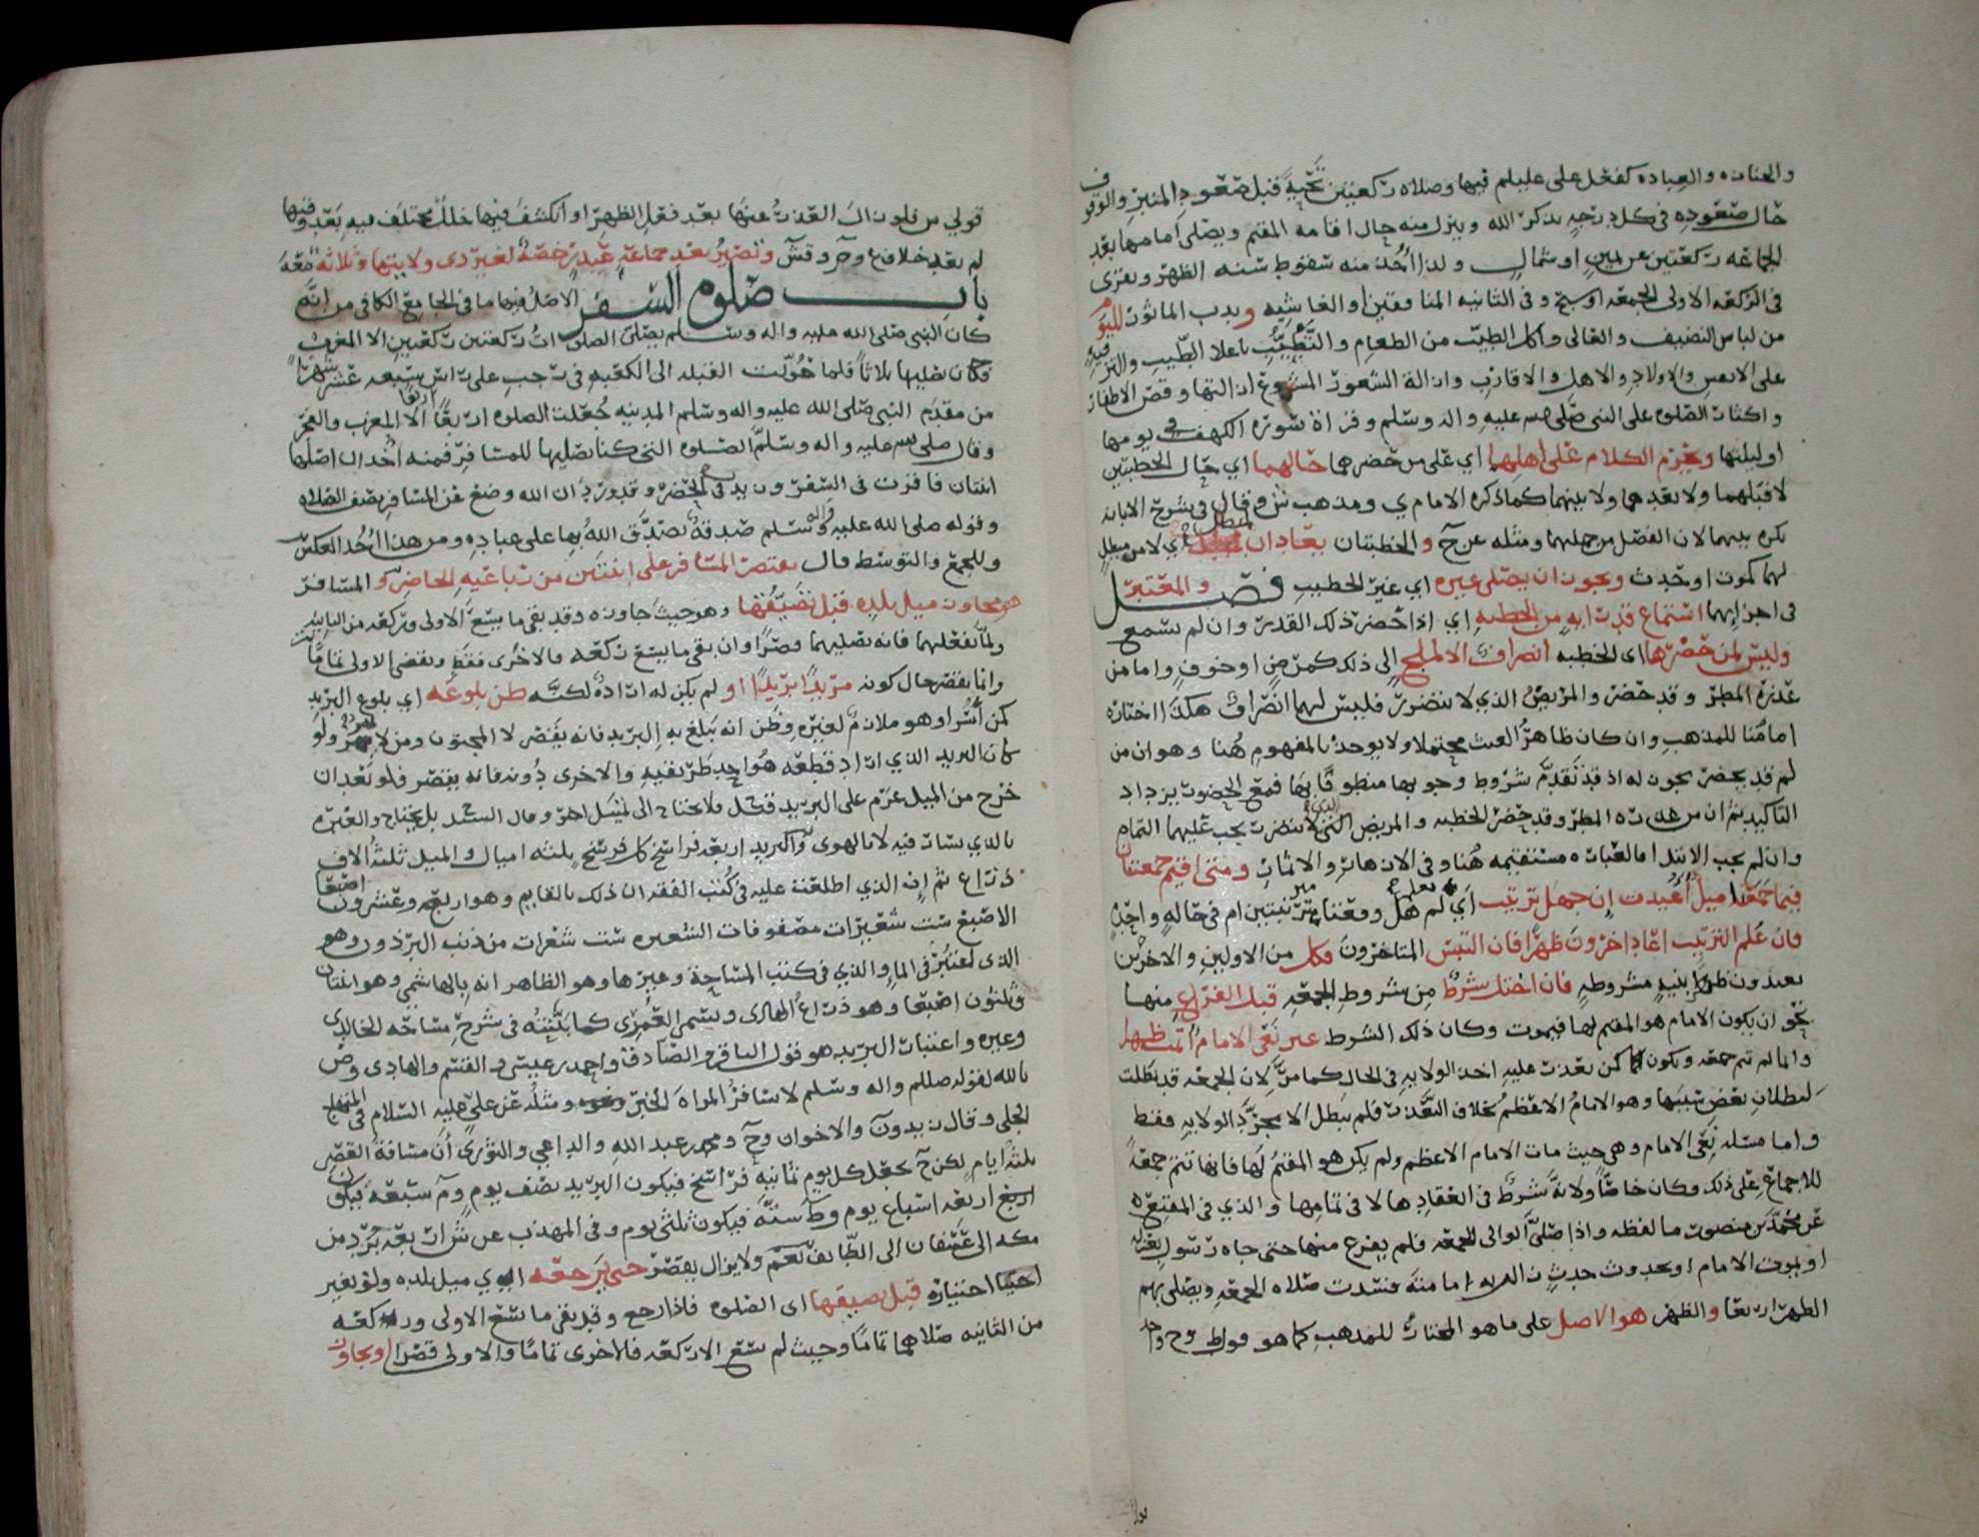 والجنازه والعياده كفعل علي عليلم فيها وصلاه ركعتين تحية قبل صعود المنبر والوقوف
حال صعوده في كل درجه يذكر الله وينزل منه حال اقامه المقيم ويصلي امامها بعد
ركعتين عن يمين او شمال ولذا اخذ منه سقوط سنه الظهر ويقرى
في الركعه الاولى الجمعه او سبح وفي الثانيه المنافقين او الغاشيه وندب الماثور لليوم
من لباس النضيف والغالي واكل الطيب من الطعام والتطيب باعلا الطيب والترفيه
على الانفس والاولاد والاهل والاقارب وازالة الشعور المشروع ازالتها وقص الاظفار
واكثار الصلوه على النبي صلى الله عليه واله وسلم وقراة سورة الكهف في يومها
او ليلتها ويحرم الكلام على اهلها اي على من حضرهما حالهما اي حال الخطبتين
لا قبلهما ولا بعدهما ولا بينهما كما ذكره الامام ي ومذهب ش وقال في شرح الابانه
يكره بينهما لان الفصل من جملتهما ومثله عن ح والخطبتان يعادان اي لا من مبطل
لهما كموت او حدث ويجوز ان يصلي غيره اي غير الخطيب فصل والمعتبر
في اجزائهما استماع قدر ايه من الخطبه اي اذا حضر ذلك القدر وان لم يسمع
وليس لمن حضرها اى الخطبه انصراف الا لملجي الى ذلك كمرض او خوف واما من
عذره المطر وقد حضر والمريض الذي لا يتضرر فليس لهما انصراف هكذا اختاره
امامنا للمذهب وان كان ظاهر العبث محتملا ولا يوخذ بالمفهوم هنا وهو ان من
لم قد يحضر يجوز له اذ قد تقدم شروط وجوبها منطوقا بها فمع الحضور يزداد
التاكيد ثم ان من عذره المطر وقد حضر الخطبه والمريض الذي لا يتضرر يجب عليهما التمام
وان لم يجب الابتدا فالعباره مستقيمه هنا وفي الازهار والاثمار ومتى اقيم جمعتان
فيما جمعهما ميل اعيدت ان جهل ترتيب اي لم يعلم هل وقعتا مترتبتين ام في حاله واحده
فان علم الترتيب اعاد اخرون ظهرا فان التبس المتاخرون فكل من الاولين والاخرين
يعيدون ظهرا بنيه مشروطه فان اختل شرط من شروط الجمعه قبل الفراغ منها
نحو ان يكون الامام هو المقيم لها فيموت وكان ذلك الشرط غير بقى الامام اتمت ظهرا
واما لم تتم جمعه وتكون كمن تعذرت عليه اخذ الولايه في الحال كما مر لان الجمعه قد بطلت
لبطلان بعض سببها وهو الامام الاعظم بخلاف التعذر فلم يبطل الا مجرد الولايه فقط
واما مسئله بقى الامام وهي حيث مات الامام الاعظم ولم يكن هو المقيم لها فانها تتم جمعة
للاجماع على ذلك وكان خاصا ولانه شرط في انعقادها لا في تمامها والذي في المقنع
عن محمد بن منصور ما لفظه واذا صلى الوالي الجمعه فلم يفرغ منها حتى جاه رسول بعزله
او بموت الامام او بحدوث حدث امامته فسدت صلاه الجمعه ويصلي بهم
الظهر اربعا والظهر هو الاصل على ما هو المختار للمذهب كما هو
قولي من قلون ان العذر عنها بعد فعل الظهر او انكشف فيها خلل مختلف فيه بعد وقتها
لم يعد خلاف ع وح وقش وتصير بعد جماعة عيد رخصة لغير ذى ولايتها وثلاثة معه
باب صلوه السفر الاصل فيها ما في الجامع الكافي من انه
كان النبي صلى الله عليه واله وسلم يصلي الصلوات ركعتين ركعتين الا المغرب
فكان يصليها ثلاثا فلما حولت القبله الى الكعبه في رجب على راس سبعه عشر شهرا
من مقدم النبي صلى الله عليه واله وسلم المدينه جعلت الصلوه اربعا اربعا الا المغرب والفجر
وقال صلى الله عليه واله وسلم الصلوه التي كنا نصليها للمسافر فمنه اخذ ان اصلها
اثنتان فاقرت في السفر وزيد في الحضر وقد ورد ان الله وضع عن المسافر نصف الصلاه
وقوله صلى الله عليه واله وسلم صدقة تصدق الله بها على عباده ومن هذا اخذ العكس
وللجمع والتوسط قال يقتصر المسافر على اثنتين من رباعيه الحاضر والمسافر
هو مجاوز ميل بلده قبل تضيقها وهو حيث جاوزه وقد بقي ما يسع الاولى وركعه من الثانيه
ولما يفعلهما فانه يصليهما وصرا وان بقي ما يسع ركعه فالاخرى فقط ويقضي الاولى تماما
وانما يقصر حال كونه مريدا بريدا او لم يكن له ارادة لكنه ظن بلوغه اي بلوغ البريد
كمن اسر او هو ملازم لغيره وظن انه يبلغ به البريد فانه يقصر لا المجنون ومن لا يميز ولو
كان البريد الذي اراد قطعه هو احد طريقيه والاخرى دونه فانه يقصر فلو بعد ان
خرج من الميل عزم على البريد قصر فلا يحتاج الى ميل اخر وقال السيد بل يحتاج والعبره
بالذي يسار فيه لا بالهوى والبريد اربعه فراسخ كل فرسخ ثلثه اميال والميل ثلثة الاف
ذراع ثم ان الذي اطلعنا عليه في كتب الفقه ان ذلك بالقايم وهو اربعه وعشرون اصبعا
الاصبع ست شعيرات مصفوفات الشعيره ست شعرات من ذنب البرذون وهو
الذى اعتبر في الما والذي في كتب المساحة وغيرها وهو الظاهر انه بالهاشمي وهو اثنتان
وثلثون اصبعا وهو ذراع الهادى ويسمى العمرى كما بينته في شرح مساحه الخالدى
وغيره واعتبار البريد هو قول الباقر والصادق واحمد بن عيسى والقسم والهادى وص
بالله لقوله صللم واله وسلم لا تسافر المراه الخبر ونحوه ومثله عن علي عليه السلام في المنهاج
الجلي وقال زيد ون والاخوان وح ومحمد بن عبد الله والداعي والثوري ان مسافة القصر
ثلثة ايام لكن ح يجعل كل يوم ثمانيه فراسخ فيكون البريد نصف يوم وم سبعة فيكون
اربع اربعه اسباع يوم وط ستة فيكون ثلثي يوم وفي المهذب عن ش اربعه برد من
مكه الى عسفان الى الطايف نعم ولا يزال يقصر حتى يرجعه الهوي ميل بلده ولو بغير
اختياره قبل تضيقها اى الصلوه فاذا رجع وقد بقى ما يسع الاولى وركعه
من الثانيه صلاهما تماما وحيث لم يسع الا ركعه فالاخرى تماما والاولى قصرا او يجاوز